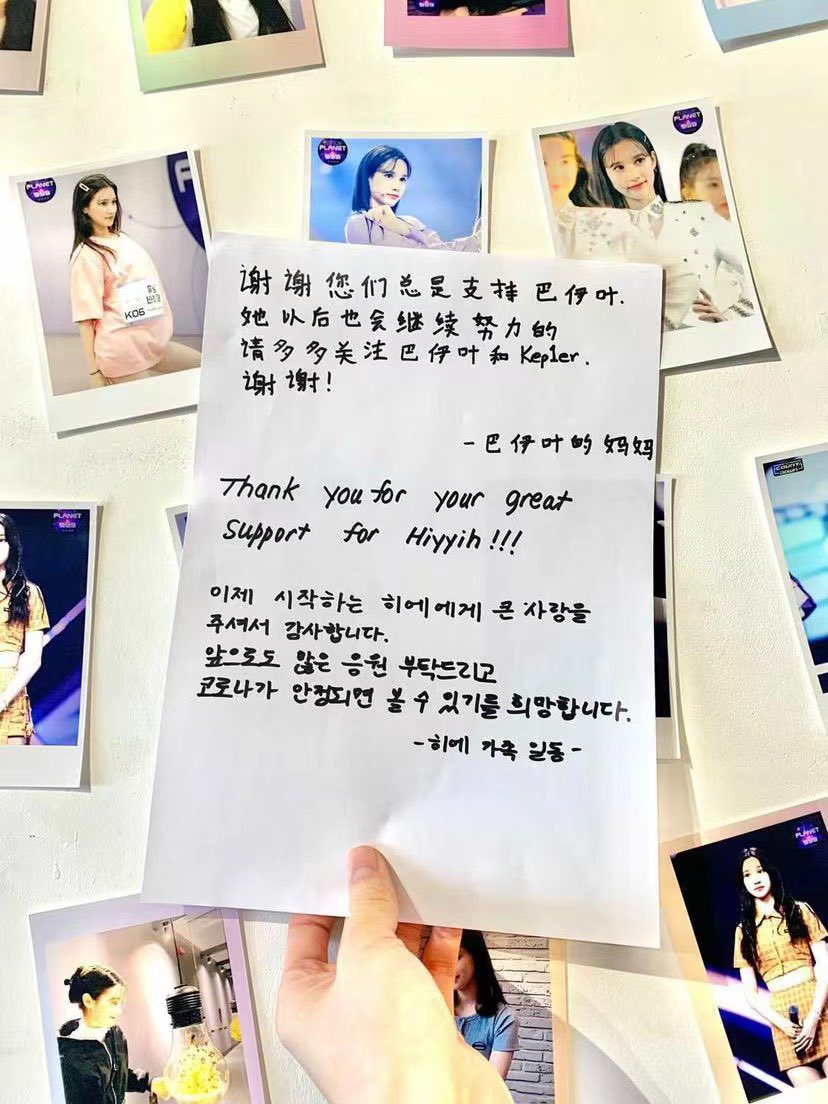 谢谢您们总是支持巴伊叶.
她以后也会继续努力的
请多多关注巴伊叶和Kep1er.
谢谢!
-巴伊叶的妈妈
Thank you for your great
support for Hiyyih!!!
이제 시작하는 히에에게 큰 사랑을
주셔서 감사합니다.
앞으로도 많은 응원 부탁드리고
코로나가 안정되면 볼 수 있기를 희망합니다.
-히에 가족 일동-
PLANET
999
PLANET
999
PLANET
999
K06
PLANET
999
COUNT
DOWN
PLANET
999